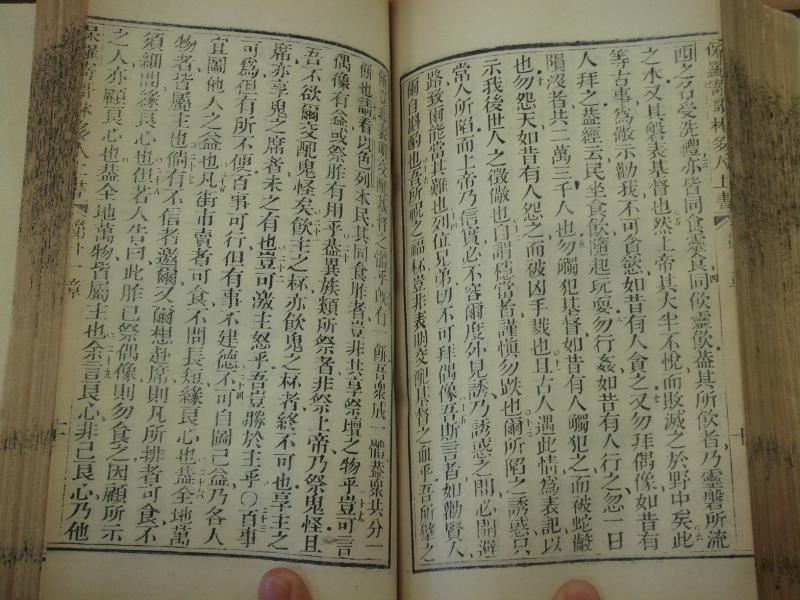 保羅寄哥林多人上書
西之名受洗禮亦皆同食靈食同飲靈飲蓋其所飲者乃靈磐所流
之水又其磐表基督也然上帝其大半不悅而敗滅之於野中矣此
等古事為儆示勸我不可貪慾如昔有人貪之又勿拜偶像如昔有
人拜之蓋經云民坐食飲隨起玩耍勿行姦如昔有人行之忽一日
隕沒者共二萬三千人也勿觸犯基督如昔有人觸犯之而被蛇齩
也勿怨天如昔有人怨之而被凶手戮也且古人遇此情為表記以
示我後世人之徵儆也自謂穩當者謹慎勿跌也爾所陷之誘惑只
常人所陷而上帝乃信實必不容爾度外見誘乃誘惑之間必開避
路致爾能當其難也列位兄弟切不可拜偶像吾斯言者如勸賢人
爾自斟酌也吾所祝之福杯豈非表明交配基督之血乎吾所擘之
餅豈非表明交配基督之體乎既有一餅吾衆成一體蓋衆共分一
餅也請看以色列本民其同食胙者豈非共享祭壇之物乎豈可言
偶像有益或祭胙有用乎蓋異族類所祭者非祭上帝乃祭鬼怪且
吾不欲爾交配鬼怪矣飲主之杯亦飲鬼之杯者終不可也享主之
席亦享鬼之席者未之有也豈可激主怒乎吾豈勝於主乎〇百事
可為但有所不便百事可行但有事不建德不可自圖己益乃各人
宜圖他人之益也凡街市賣者可食不問長短緣良心也蓋全地萬
物者皆屬主也倘有不信者邀爾又爾想赴席則凡所排者可食不
須細問緣良心也但若人告曰此胙已祭偶像則勿食之因顧所示
之人亦顧良心也蓋全地萬物皆屬主也余言良心非己良心乃他
保羅寄哥林多人上書 第十一章 十